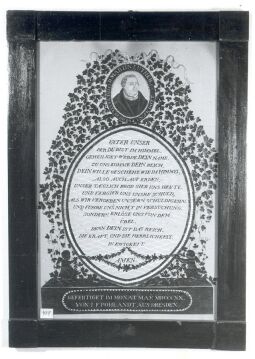 VATER UNSER
DER DU BIST IM HIMMEL.
GEHEILIGET WERDE DEIN NAME.
ZU UNS KOMME DEIN REICH.
DEIN WILLE GESCHEHE WIE IM HIMMEL,
ALSO AUCH AUF ERDEN.
UNSER TAEGLICH BROD GIEB UNS HEUTE.
UND VERGIEB UNS UNSRE SCHULD,
ALS WIR VERGEBEN UNSERN SCHULDIGERN.
UND FÜHRE UNS NICHT IN VERSUCHUNG.
SONDERN ERLÖSE UNS VON DEM
ÜBEL.
DENN DEIN IST DAS REICH,
DIE KRAFT, UND DIE HERRLICHKEIT,
IN EWIGKEIT.
AMEN.
GEFERTIGET IM MONAT MAY MDCCCXX.
VON I. F. POHLANDT, AUS DRESDEN.